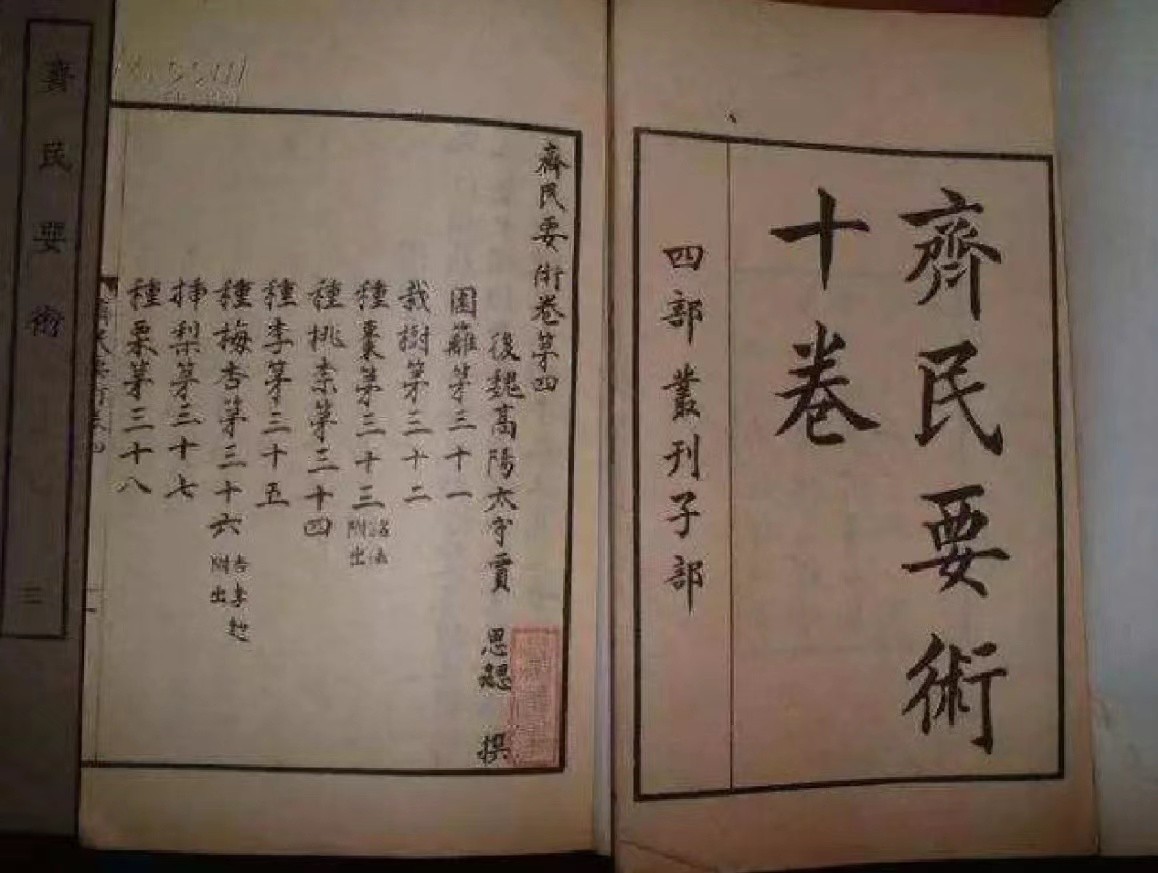 齊民要術
十卷
四部叢刊子部
齊民要術卷第四
後魏高陽太守賈思勰撰
園籬第三十一
栽樹第三十二
種棗第三十三 諸法附出
種桃柰第三十四
種李第三十五
種梅杏第三十六 杏李麨附出
插梨第三十七
種栗第三十八
齊民要術
三